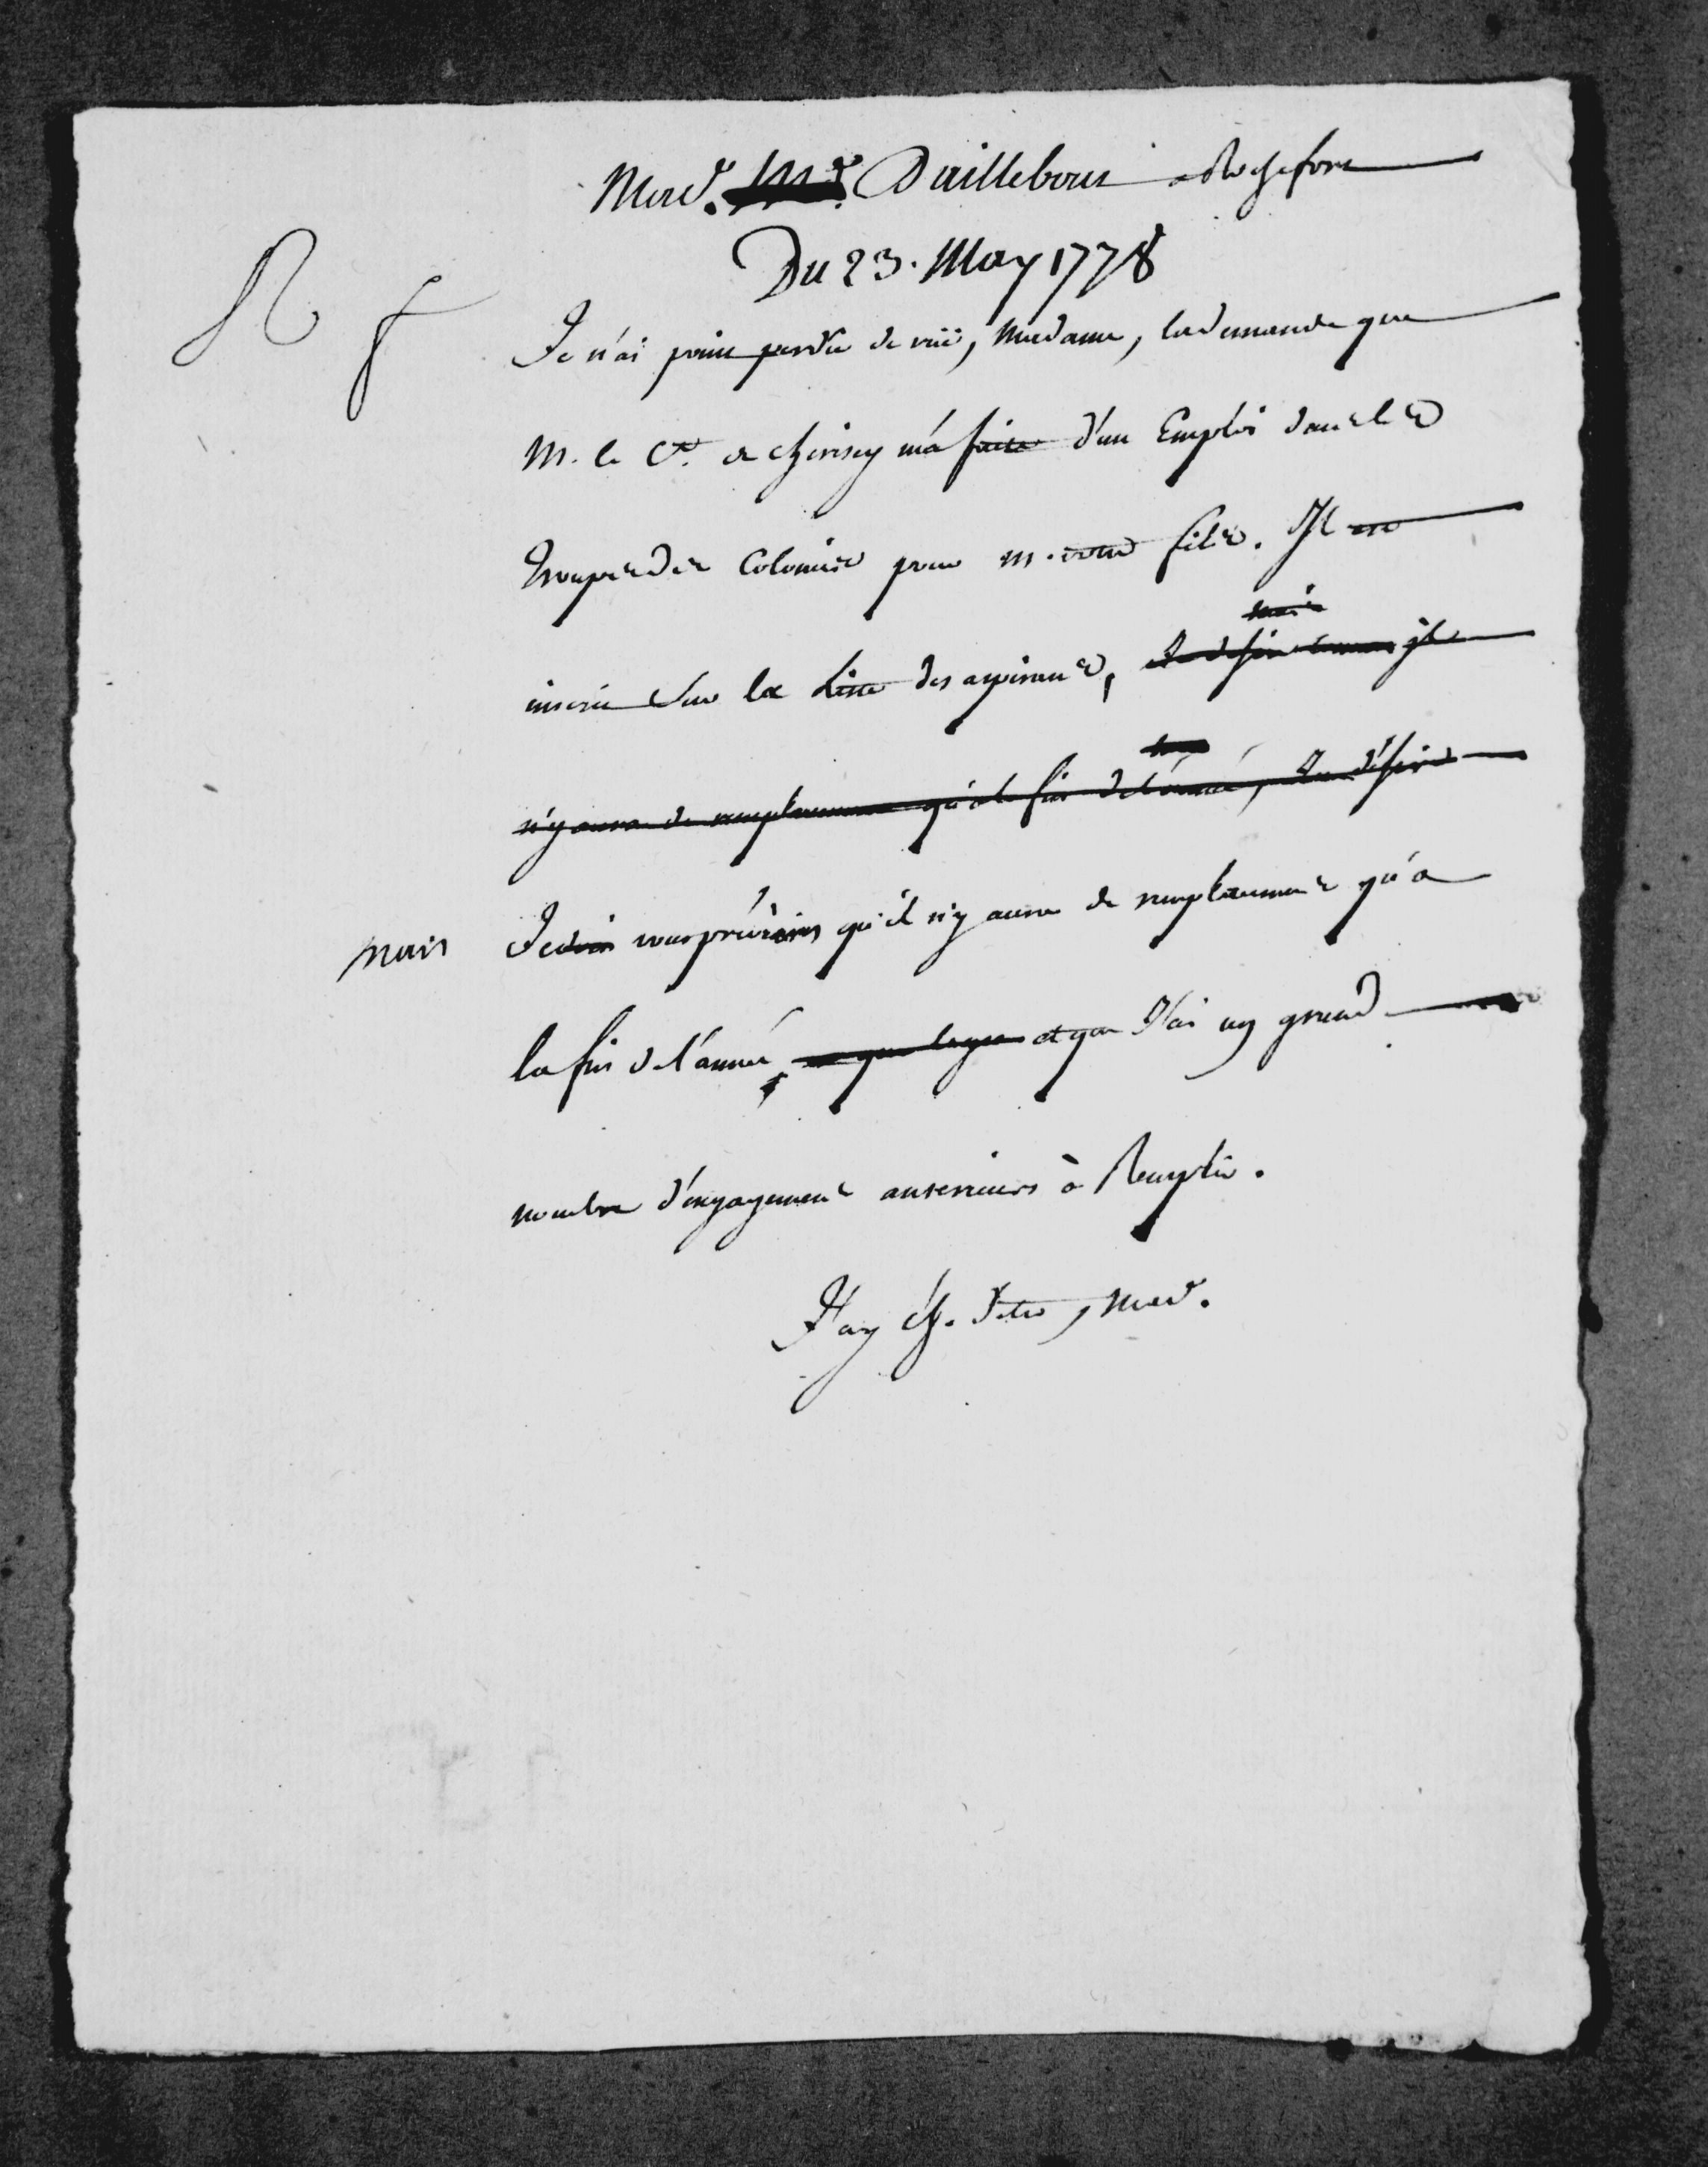 Mad.e M.e Daillebout a Rochefort
Du 23. May 1778
R f
Je n'ai point perdu de vüe, Madame, la demande que
M. le Cte. de cherisey m'a faite d'un Emploi dans les
troupes des Colonies pour m. votre fils. Il est
inscrit sur la Liste des aspirants, mais Je désire comme il
n'y aura de remplacement qu'à la fin de l'année, Je désire
mais Je dois vous prévenir qu'il n'y aura de remplacement qu'a
la fin de l'année, et que et que J'ai un grand
nombre d'engagements anterieurs à Remplir.
J'ay l'h. d'etre, Mad.